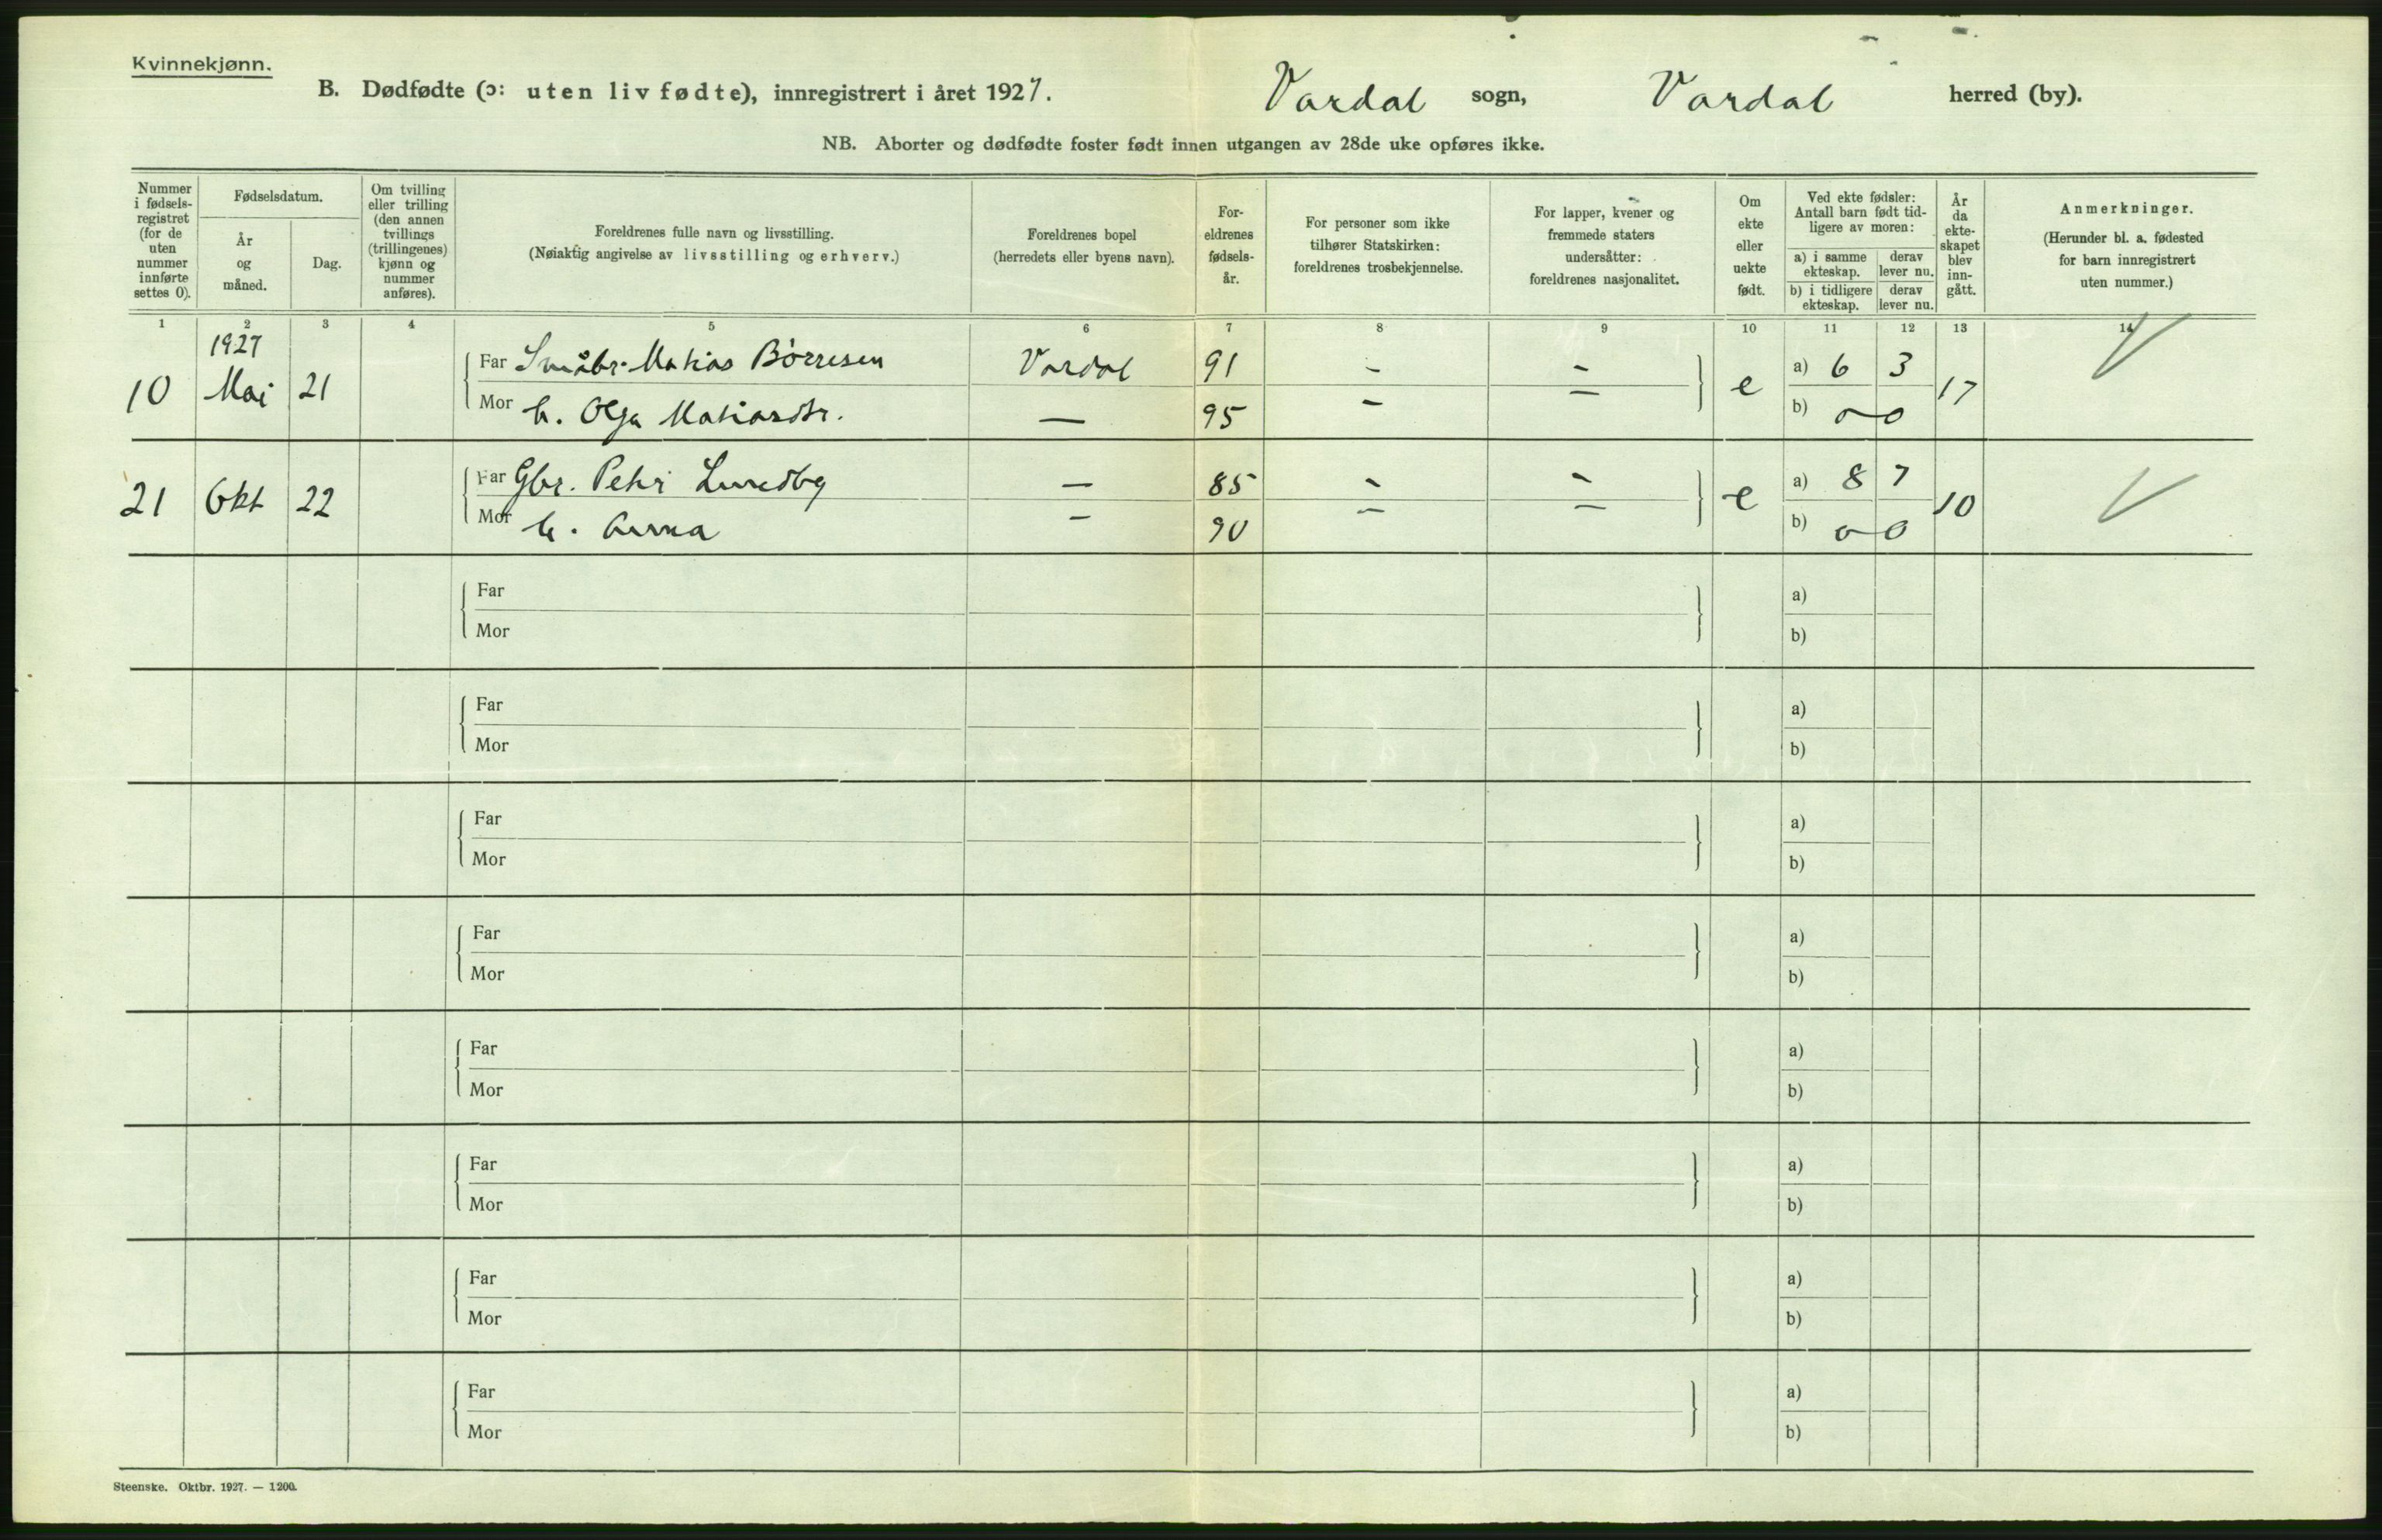 Kvinnekjønn.
B. Dødfødte (ɔ: uten liv fødte), innregistrert i året 1927. Vardal sogn, Vardal herred (by).
NB. Aborter og dødfødte foster født innen utgangen av 28de uke opføres ikke.
Nummer i fødsels-registret (for de uten nummer innførte settes 0).
Fødselsdatum.
År og måned.
Dag.
Om tvilling eller trilling (den annen tvillings (trillingenes) kjønn og nummer anføres).
Foreldrenes fulle navn og livsstilling.
(Nøiaktig angivelse av livsstilling og erhverv.)
Foreldrenes bopel
(herredets eller byens navn).
For-eldrenes fødsels-år.
For personer som ikke tilhører Statskirken: foreldrenes trosbekjennelse.
For lapper, kvener og fremmede staters undersåtter: foreldrenes nasjonalitet.
Om ekte eller uekte født.
Ved ekte fødsler: Antall barn født tid-ligere av moren:
a) i samme ekteskap.
derav lever nu.
b) i tidligere ekteskap.
derav lever nu.
År da ekte-skapet blev inn-gått.
Anmerkninger.
(Herunder bl. a. fødested for barn innregistrert uten nummer.)
1 2 3 4 5 6 7 8 9 10 11 12 13 14
1927
10 Mai 21 Far Småbr. Matias Börresen Vardal 91 - - e a) 6 3 17 V
Mor h. Olga Matiasdtr. — 95 - - b) 0 0
21 Okt 22 Far Gbr. Peter Lundby — 85 - - e a) 8 7 10 V
Mor h. Anna — 90 - - b) 0 0
Far a)
Mor b)
Far a)
Mor b)
Far a)
Mor b)
Far a)
Mor b)
Far a)
Mor b)
Far a)
Mor b)
Far a)
Mor b)
Far a)
Mor b)
Steenske. Oktbr. 1927. — 1200.